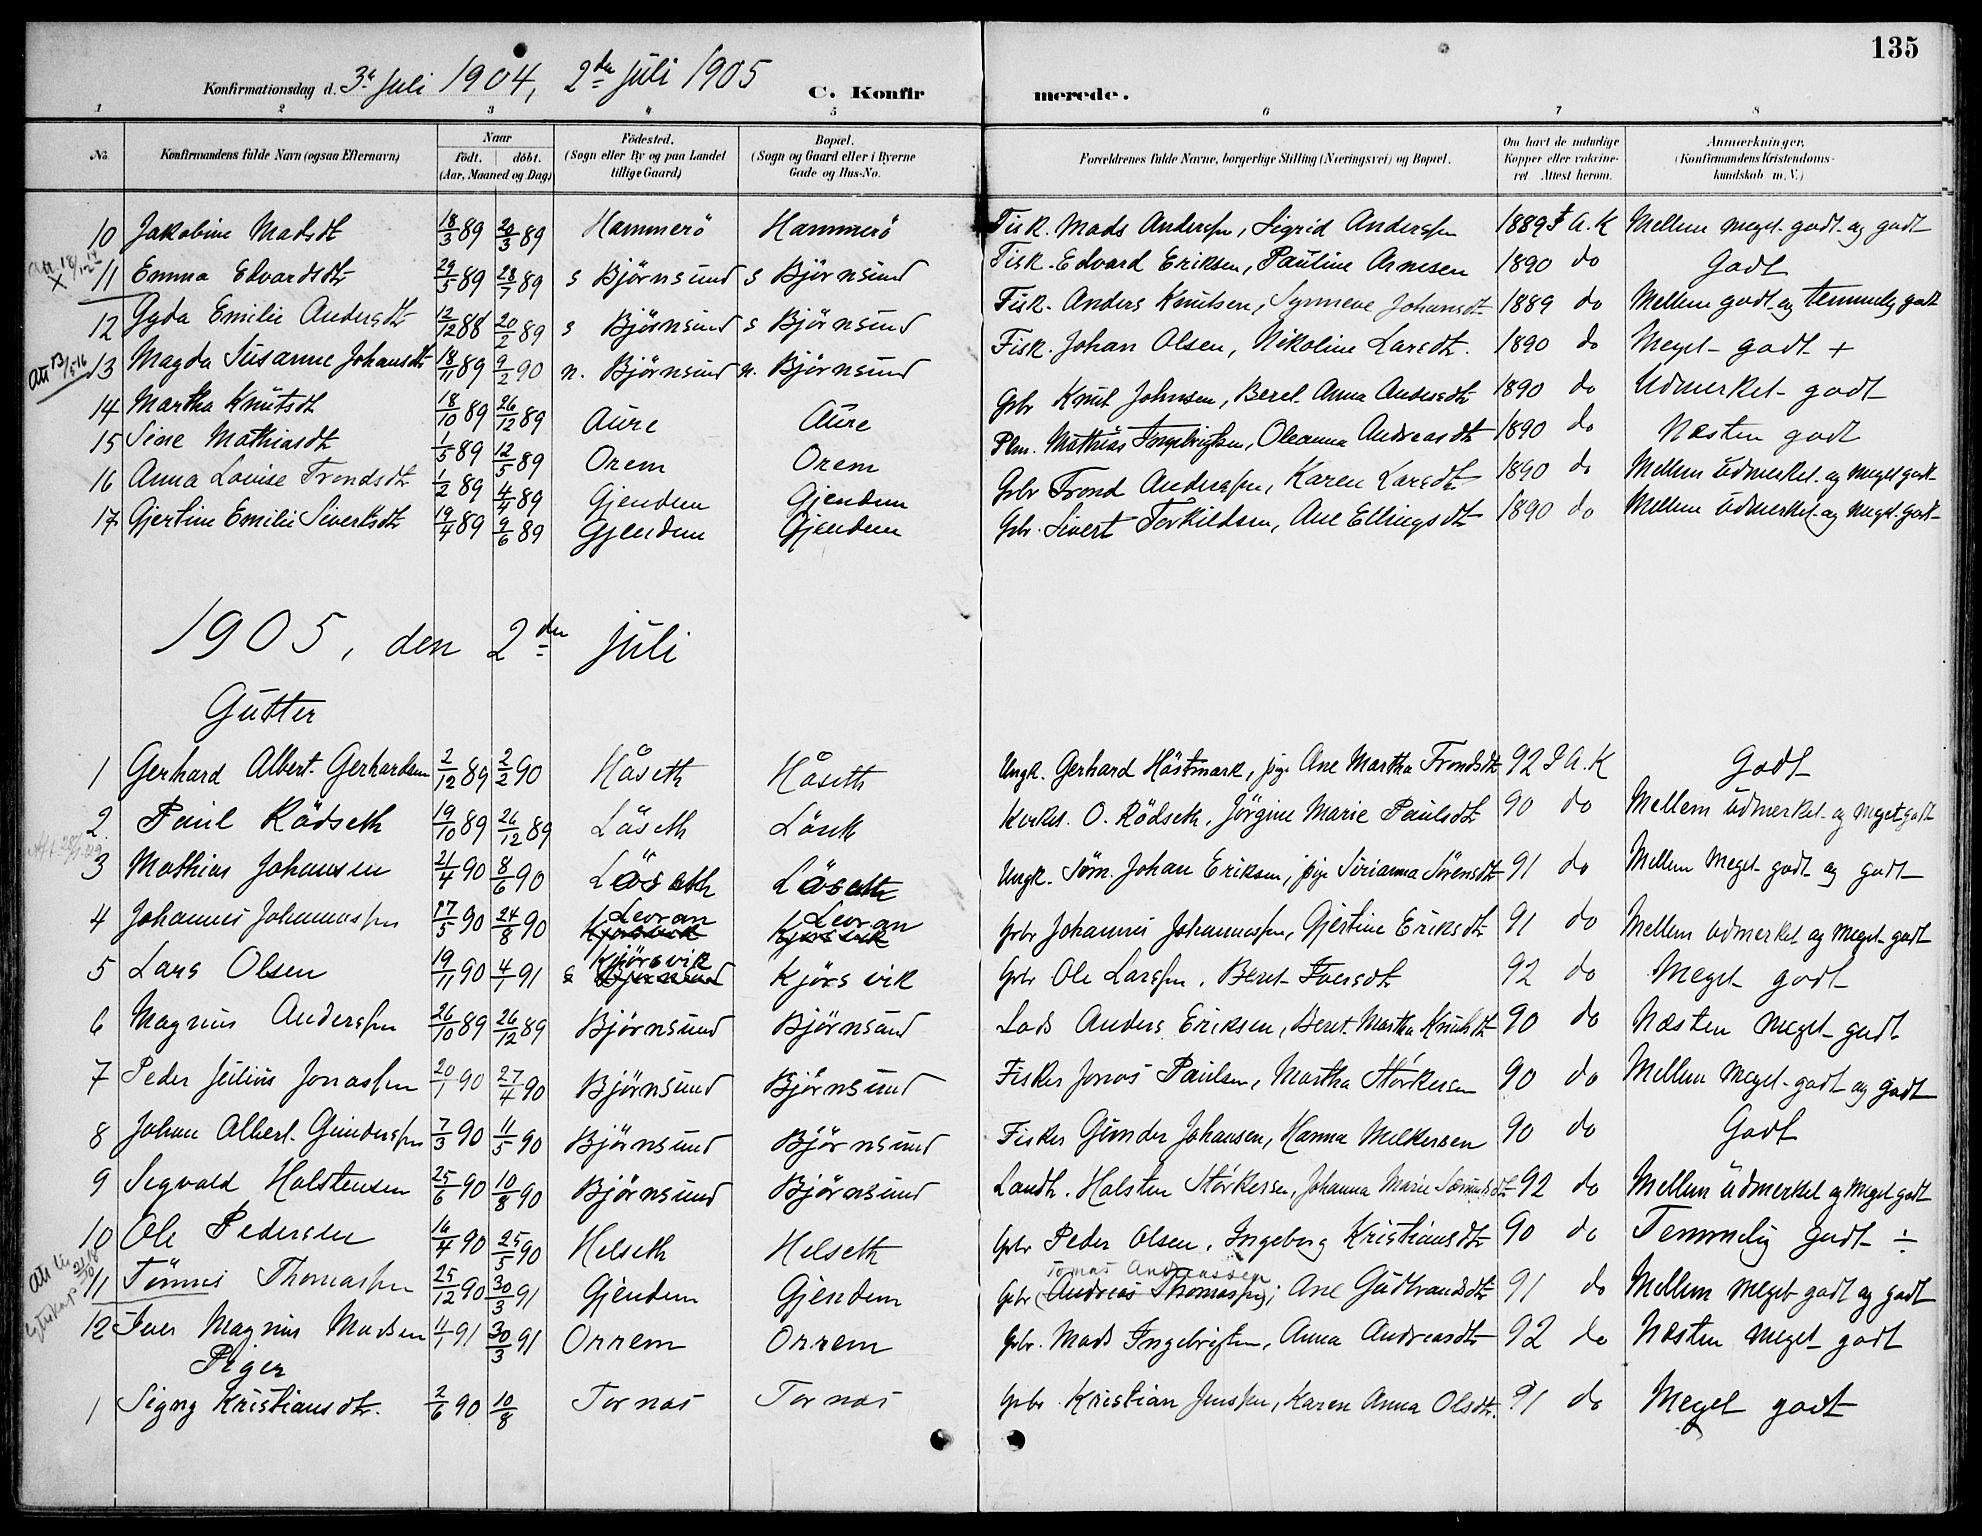 135
Konfirmationsdag d. 3die Juli 1904, 2den Juli 1905 C. Konfirmerede.
1 2 3 4 5 6 7 8
No. Konfirmandens fulde Navn (ogsaa Efternavn) Naar født. døbt. (Aar, Maaned og Dag) Fødested. (Sogn eller By og paa Landet tillige Gaard) Bopæl. (Sogn og Gaard eller i Byerne Gade og Hus-No. Forældrenes fulde Navne, borgerlige Stilling (Næringsvei) og Bopæl. Om havt de naturlige Kopper eller vaccineret Attest herom. Anmærkninger, (Konfirmandens Kristendomskundskab m. V.)
10 Jakobine Madsdtr 18/3 89 20/3 89 Hammerö Hammerö Fisk. Mads Anderssen, Sigrid Anderssen 1889 A.K Mellem meget godt og godt
11 Emma Edvardsdtr 29/5 89 28/7 89 s Björnsund s Björnsund Fisk. Edvard Eriksen, Pauline Arnesen 1890 do Godt
12 Gyda Emilie Andersdtr 12/12 88 20/2 89 s Björnsund s Björnsund Fisk. Anders Knutsen, Synneve Johansdtr 1889 do Mellem godt og temmelig godt
att 13/5 16
13 Magda Susanne Johansdtr 18/11 89 9/2 90 n. Björnsund n. Björnsund Fisk. Johan Olsen, Nikoline Larsdtr. 1890 do Meget godt +
14 Martha Knutsdt 18/10 89 26/12 89 Aure Aure Gbr Knut Johnsen, Beret Anna Andersdtr 1890 do Udmerket godt
15 Sine Mathiasdtr 1/5 89 12/5 89 Orem Orem Plm. Mathias Ingebrigtsen, Oleanna Andreasdtr 1890 do Næsten godt
16 Anna Lovise Trondsdtr 1/2 89 4/4 89 Gjendem Gjendem Gbr Trond Anderssen, Karen Larsdtr 1890 do Mellem udmerket og meget godt
17 Gjertine Emilie Sivertsdtr 19/4 89 9/6 89 Gjendem Gjendem Gbr. Sivert Torkildsen, Ane Ellingsdtr 1890 do Mellem udmerket og meget godt
1905, den 2den Juli
Gutter
1 Gerhard Albert Gerhardsen 2/12 89 2/2 90 Håseth Håseth Ungk. Gerhard Höstmark, pige Ane Martha Trondsdtr 92 A.K Godt
2 Paul Rödseth 19/10 89 26/12 89 Låseth Låseth Kirkes. O. Rödseth, Jörgine Marie Paulsdtr 90 do Mellem udmerket og meget godt
3 Mathias Johansen 21/4 90 8/6 90 Låseth Låseth Ungk. Söm. Johan Eriksen, pige Sirianna Sörensdtr 91 do Mellem meget godt og godt
4 Johannes Johannessen 17/5 90 24/8 90 Leoran Kjörsvik Leoran Kjörsvik Gbr Johannes Johannessen, Gjertine Eriksdtr 91 do Mellem udmerket og meget godt
5 Lars Olsen 19/11 90 4/1 91 Kjörsvik s Björnsund Kjörsvik Gbr Ole Larssen, Beret Iversdtr 92 do Meget godt
6 Magnus Anderssen 26/10 89 26/12 89 Björnsund Björnsund Lods Anders Eriksen, Beret Martha Knutsdtr 90 do Næsten meget godt
7 Peder Julius Jonassen 20/1 90 27/4 90 Björnsund Björnsund Fisker Jonas Paulsen, Martha Störkersen 90 do Mellem meget godt og godt
8 Johan Albert Gunderssen 7/3 90 11/5 90 Björnsund Björnsund Fisker Gunder Johansen, Hanna Melkersen 90 do Godt
9 Sigvald Holstensen 25/6 90 10/8 90 Björnsund Björnsund Landh. Holsten Störkersen, Johanna Marie 92 do Mellem udmerket og meget godt
10 Ole Pedersen 16/4 90 25/5 90 Helseth Helseth Gbr Peder Olsen, Ingeborg Kristiansdtr 90 do Temmelig godt ÷
Tomas Andreassen
11 Tönnes Thomassen 25/12 90 30/3 91 Gjendem Gjendem Gbr (Andreas Thomassen), Ane Gudbrandsdtr 91 do Mellem meget godt og godt
12 Iver Magnus Madsen 4/1 91 30/3 91 Orrem Orrem Gbr. Mads Ingebrigtsen, Anna Andreasdtr 92 do Næsten meget godt
Piger
1 Signy Kristiansdtr. 2/6 90 10/8 Tornes Tornes Gbr. Kristian Jenssen, Karen Anna Olsdtr. 91 do Meget godt